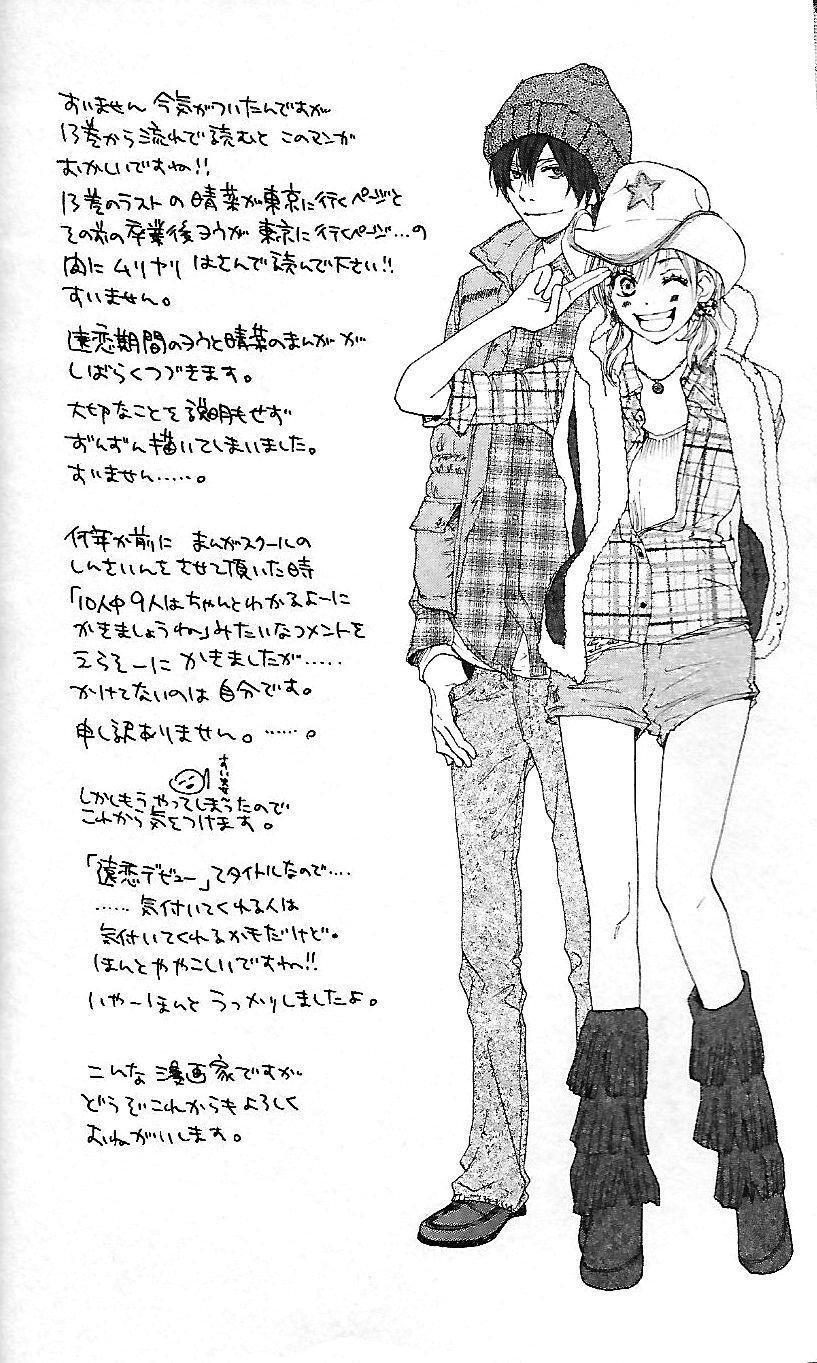 すいません 今気がついたんですが
13巻から流れで読むと このマンガ
おかしいですね!!
13巻のラストの晴菜が東京に行くページと
その前の卒業後ヨウが東京に行くページ…の
間に ムリヤリ はさんで読んで下さい!!
すいません。
遠恋期間のヨウと晴菜のまんがが
しばらくつづきます。
大切なことを説明もせず
ずんずん描いてしまいました。
すいません……。
何年か前に まんがスクールの
しんさいんをさせて頂いた時
「10人中9人はちゃんとわかるよーに
かきましょうね」みたいなコメントを
えらそーに かきましたが……
かけてないのは 自分です。
申し訳ありません。……。
すいません
しかしもうやってしまったので
これから気をつけます。
「遠恋デビュー」てタイトルなので…．
…… 気付いてくれる人は
気付いてくれるかもだけど。
ほんとややこしいですね!!
いやーほんと うっかりしましたよ。
こんな 漫画家ですが
どうぞこれからもよろしく
おねがいします。